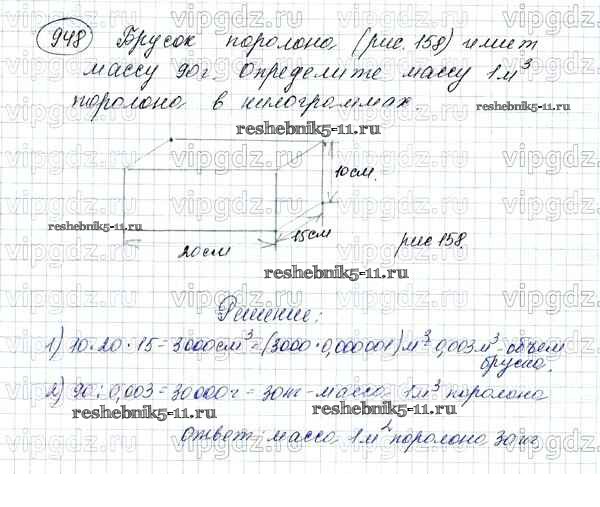 948 Брусок поролона (рис. 158) имеет
массу 90г. Определите массу 1м³
поролона в килограммах.
reshebnik5-11.ru
reshebnik5-11.ru
10см.
reshebnik5-11.ru
15см
20см
рис 158.
reshebnik5-11.ru
Решение:
1) 10·20·15=3000см³=(3000·0,000001)м³=0,003м³-объем
бруска.
2) 90:0,003=30000г=30кг-масса 1м³ поролона
reshebnik5-11.ru
reshebnik5-11.ru
Ответ: масса 1м² поролона 30кг
vipgdz.ru